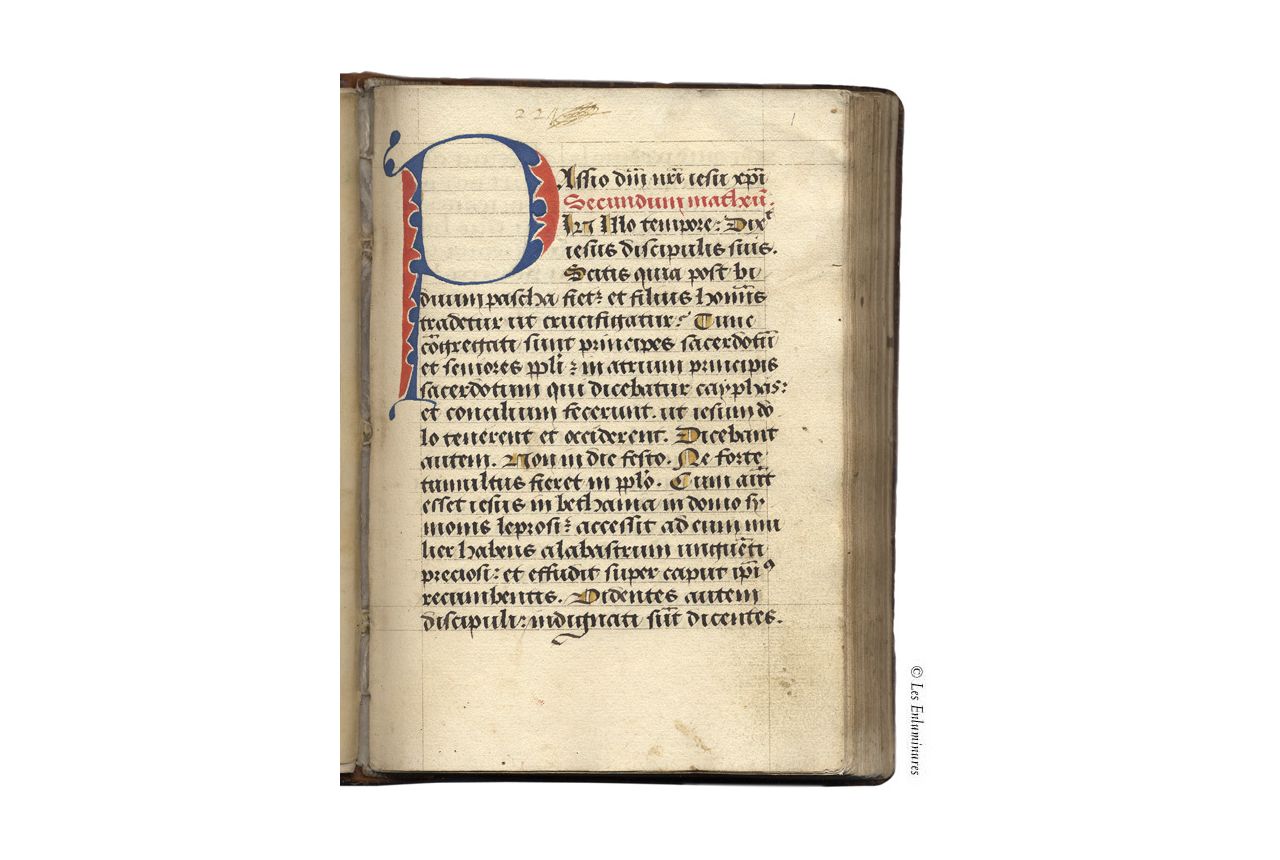 22
1
PAssio dñi nr̃i iesu xp̃i
Secundum matheũ.
In Illo tempore: Dixt
iesus discipulis suis.
Scitis quia post bi
duum pascha fiet: et filius hom̃is
tradetur ut crucifigatur: Tunc
cõgregati sunt principes sacerdotũ
et seniores pp̃li: in atrium principis
sacerdotum qui dicebatur cayphas:
et concilium fecerunt. ut iesum do
lo tenerent et occiderent. Dicebant
autem. Non in die festo. Ne forte
tumultus fieret in pp̃lo. Cum aũt
esset iesus in bethania in domo sy
monis leprosi: accessit ad eum mu
lier habens alabastrum unguẽti
preciosi: et effudit super caput ip̃iꝰ
recumbentis. Videntes autem
discipuli: indignati sũt dicentes.
© Les Enluminures